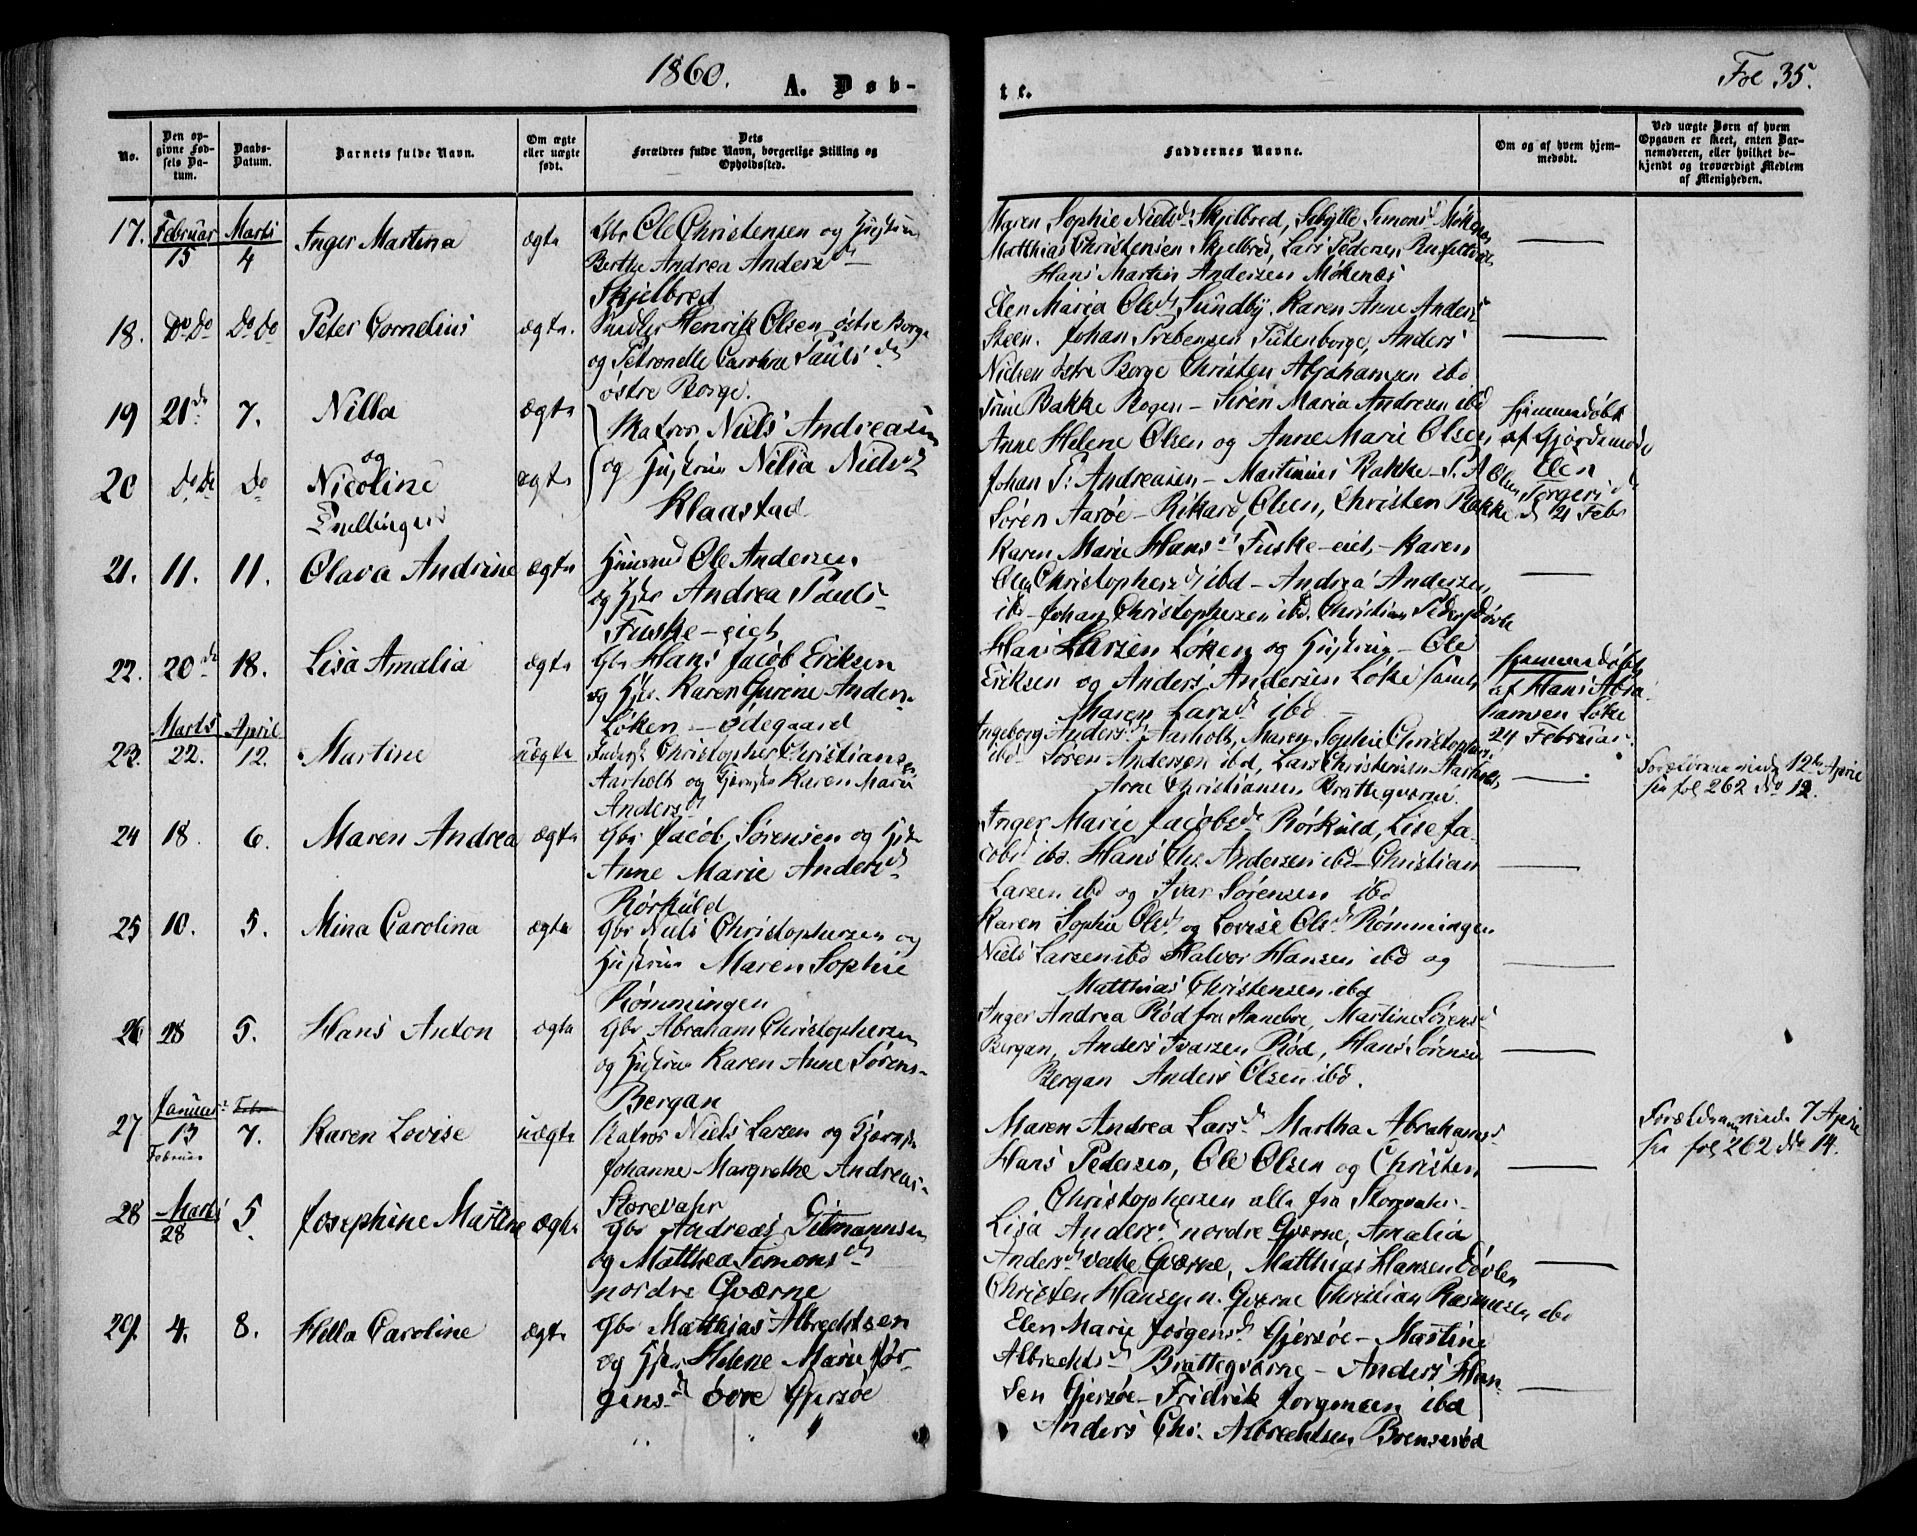 1860.
A. Døb-
No.
Den op-
givne Fød-
sels Da-
tum.
Daabs-
Datum.
Barnets fulde Navn.
Om ægte
eller uægte
født.
Dets
Forældres fulde Navn, borgerlige Stilling og
Opholdssted.
17. Februar 15 Marts 4 Inger Martina ægte
Gbr Ole Christensen og Hustru
Berthe Andrea Andersd
Skjelbred
18. Do Do Do Do Peter Cornelius ægte.
Henrik Olsen østre Borge
og Petronelle Carolina Paulsd
østre Borge.
19 21de 7. Nilla ægte
og
20 Do Do Do Nicoline ægte
Tvillinger
Matros Niels Andreasen
og Hustru Nilia Nielsd
Klaastad
21. 11. 11. Olava Andrine ægte
Huusmd Ole Andersen
og Hstr Andrea Pauls-
Fuske-eiet
22. 20de 18. Lisa Amalia ægte
Gbr Hans Jacob Eriksen
og Hstr. Karen Gurine Anders.
Løken - ødegaard
23. Marts 22. April 12. Martine uægte
Christopher Christiansen
Aarholt og Karen Marie
Andersd
24 18. 6. Maren Andrea ægte
Gbr Jacob Sørensen og Hstr
Anne Marie Andersd
Rørkuld
25 10. 5. Mina Carolina ægte
Gbr Niels Christophersen og
Hustrue Maren Sophie
Rømmingen
26 28 5. Hans Anton ægte
Gbr Abraham Christophersen
og Hustrue Karen Anne Sørens-
Bergan
27 Januar 13 Februar 7. Karen Lovise uægte
Matros Niels Larsen og
Johanne Margrethe Andreas-
Storevahr
28 Marts 28 5. Josephine Martine ægte
Gbr Andreas Titmannsen
og Matthea Simonsd
nordre Qværne
29. 4. 8. Hella Caroline ægte
Gbr Matthias Albrechtsen
og Hstr Helene Marie Jør-
gensd øvre Gjersøe
te.
Fol 35.
Faddernes Navne.
Om og af hvem hjem-
medøbt.
Ved uægte Børn af hvem
Opgaven er skeet, enten Bar-
nemoderen, eller hvilket be-
kjendt og troværdigt Medlem
af Menigheden.
Maren Sophie Nielsd Skjelbred, Sibylle Simonsd Møkenæs
Matthias Christensen Skjelbred, Lars Pedersen
Hans Martin Andersen Møkenæs
Elen Maria Olsd Sundby, Karen Anne Andersd
Steen. Johan Prebensen Sutenborge, Anders
Nielsen østre Borge Christen Abrahamsen ibd
Trine Bakke Bogen - Siren Maria Andresen ibd
Anne Helene Olsen og Anne Marie Olsen
Johan P. Andreasen - Martinius Bakke - P. A. Olsen
Søren Aarøe - Rikard Olsen, Christen Bakke
hjemmedøbt
af Gjordemoder
Elen
Torgersd
d 21 Febr
Karen Marie Hansd Fuske-eiet - Karen
Christophersd ibd - Andrea Andersen
ibd - Johan Christophersen ibd. Christian Pedersen
Hans Larsen Løken og Hustrue - Ole
Eriksen og Anders Andersen Løke samt
Maren Larsd ibd
hjemmedøbt
af Hans Abra-
hamsen Løke
24 Februar
Ingeborg Andersd Aarholt, Maren Sophie Christophersd
ibd Søren Andersen ibd, Lars Christensen Aarholt
Arne Christiansen Brattegværne.
Forældrene viede 12te April
se fol 262 No 12.
Inger Marie Jacobsd Rørkuld, Lise Ja-
cobsd ibd. Hans Chr. Andersen ibd - Christian
Larsen ibd og Ivar Sørensen ibd
Karen Sophie Olsd og Lovise Olsd Rømmingen
Niels Larsen ibd Halvor Hansen ibd og
Matthias Christensen ibd
Inger Andrea Rød fra Anneboe, Martine Sørensd
Bergan, Anders Ivarsen Rød, Hans Sørensen
Bergan Anders Olsen ibd.
Maren Andrea Larsd Martha Abrahamsd
Hans Pedersen, Ole Olsen og Christen
Christophersen alle fra Storevahr
Forældrene viede 7 April
se fol 262 No 14.
Lisa Andersd nordre Qværne, Amalia
Andersd vestre Qværne, Matthias Hansen Døvlen
Christen Hansen n. Qværne Christian Rasmusen ibd
Elen Marie Jørgensd Gjersøe - Martine
Albrechtsd Brattegværne - Anders Han-
sen Gjersøe - Fridrik Jørgensen ibd
Anders Chr. Albrechtsen Brenserød